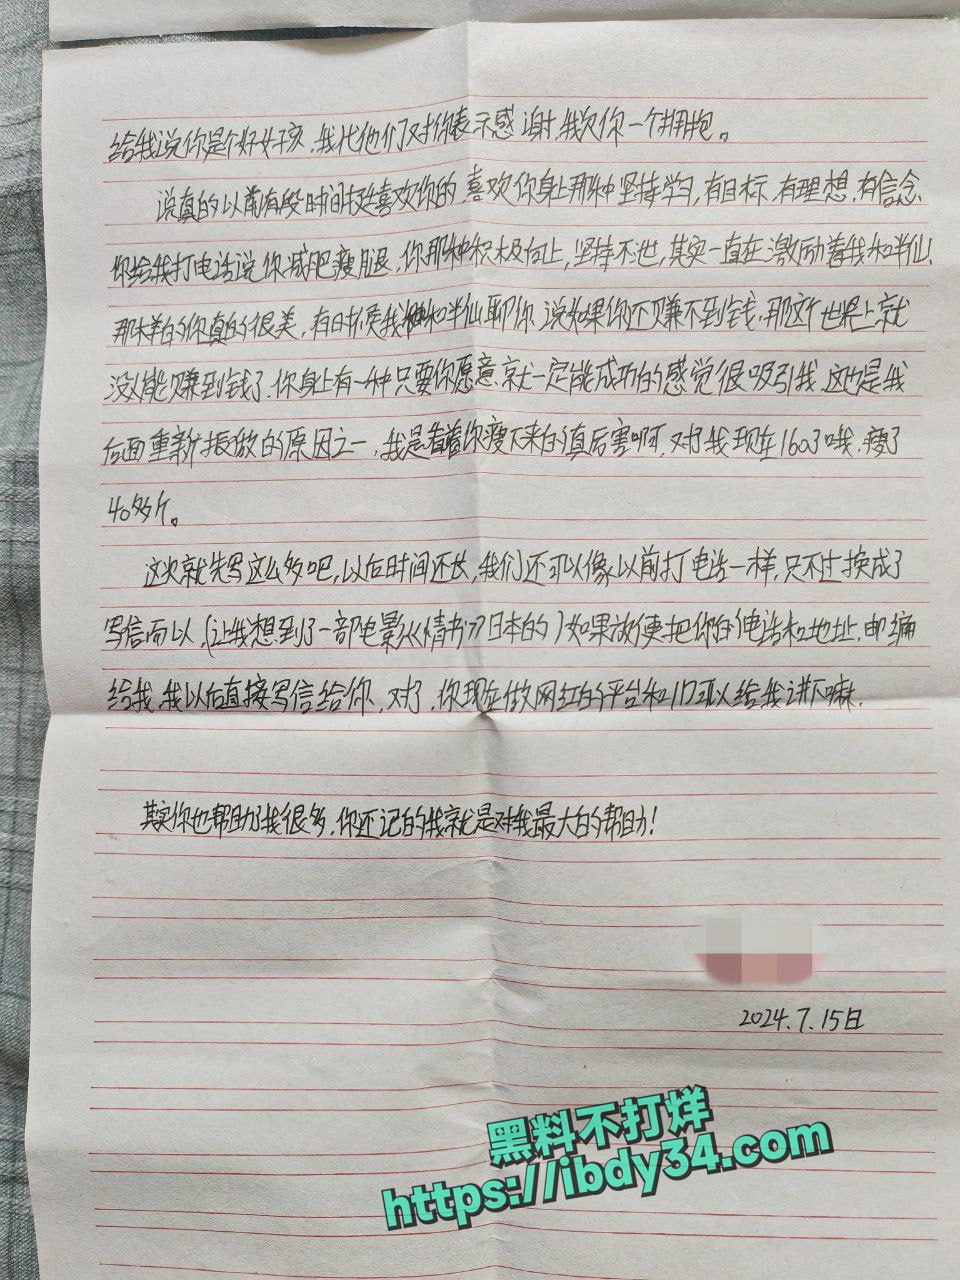 给我说你是个好女孩，我代他们对你表示感谢，我欠你一个拥抱。
说真的以前有段时间挺喜欢你的，喜欢你身上那种坚持学习，有目标，有理想，有信念，
你给我打电话说你减肥瘦腿，你那种积极向上，坚持不懈，其实一直在激励着我和半仙、
那样的你真的很美，有时候我和半仙聊你，说如果你还赚不到钱，那这个世界上就
没人能赚到钱了，你身上有一种只要你愿意就一定能成功的感觉很吸引我，这也是我
后面重新振做的原因之一，我是看着你瘦下来的真厉害啊，对了我现在160了哦，瘦了
40多斤。
这次就先写这么多吧，以后时间还长，我们还可以像以前打电话一样，只不过换成了
写信而以（让我想到了一部电影《情书》日本的）如果放便把你的电话和地址，邮编
给我，我以后直接写信给你，对了，你现在做网红的平台和ID可以给我讲下嘛.
其实你也帮助了我很多，你还记的我就是对我最大的帮助！
2024.7.15日
黑料不打烊
https://ibdy34.com